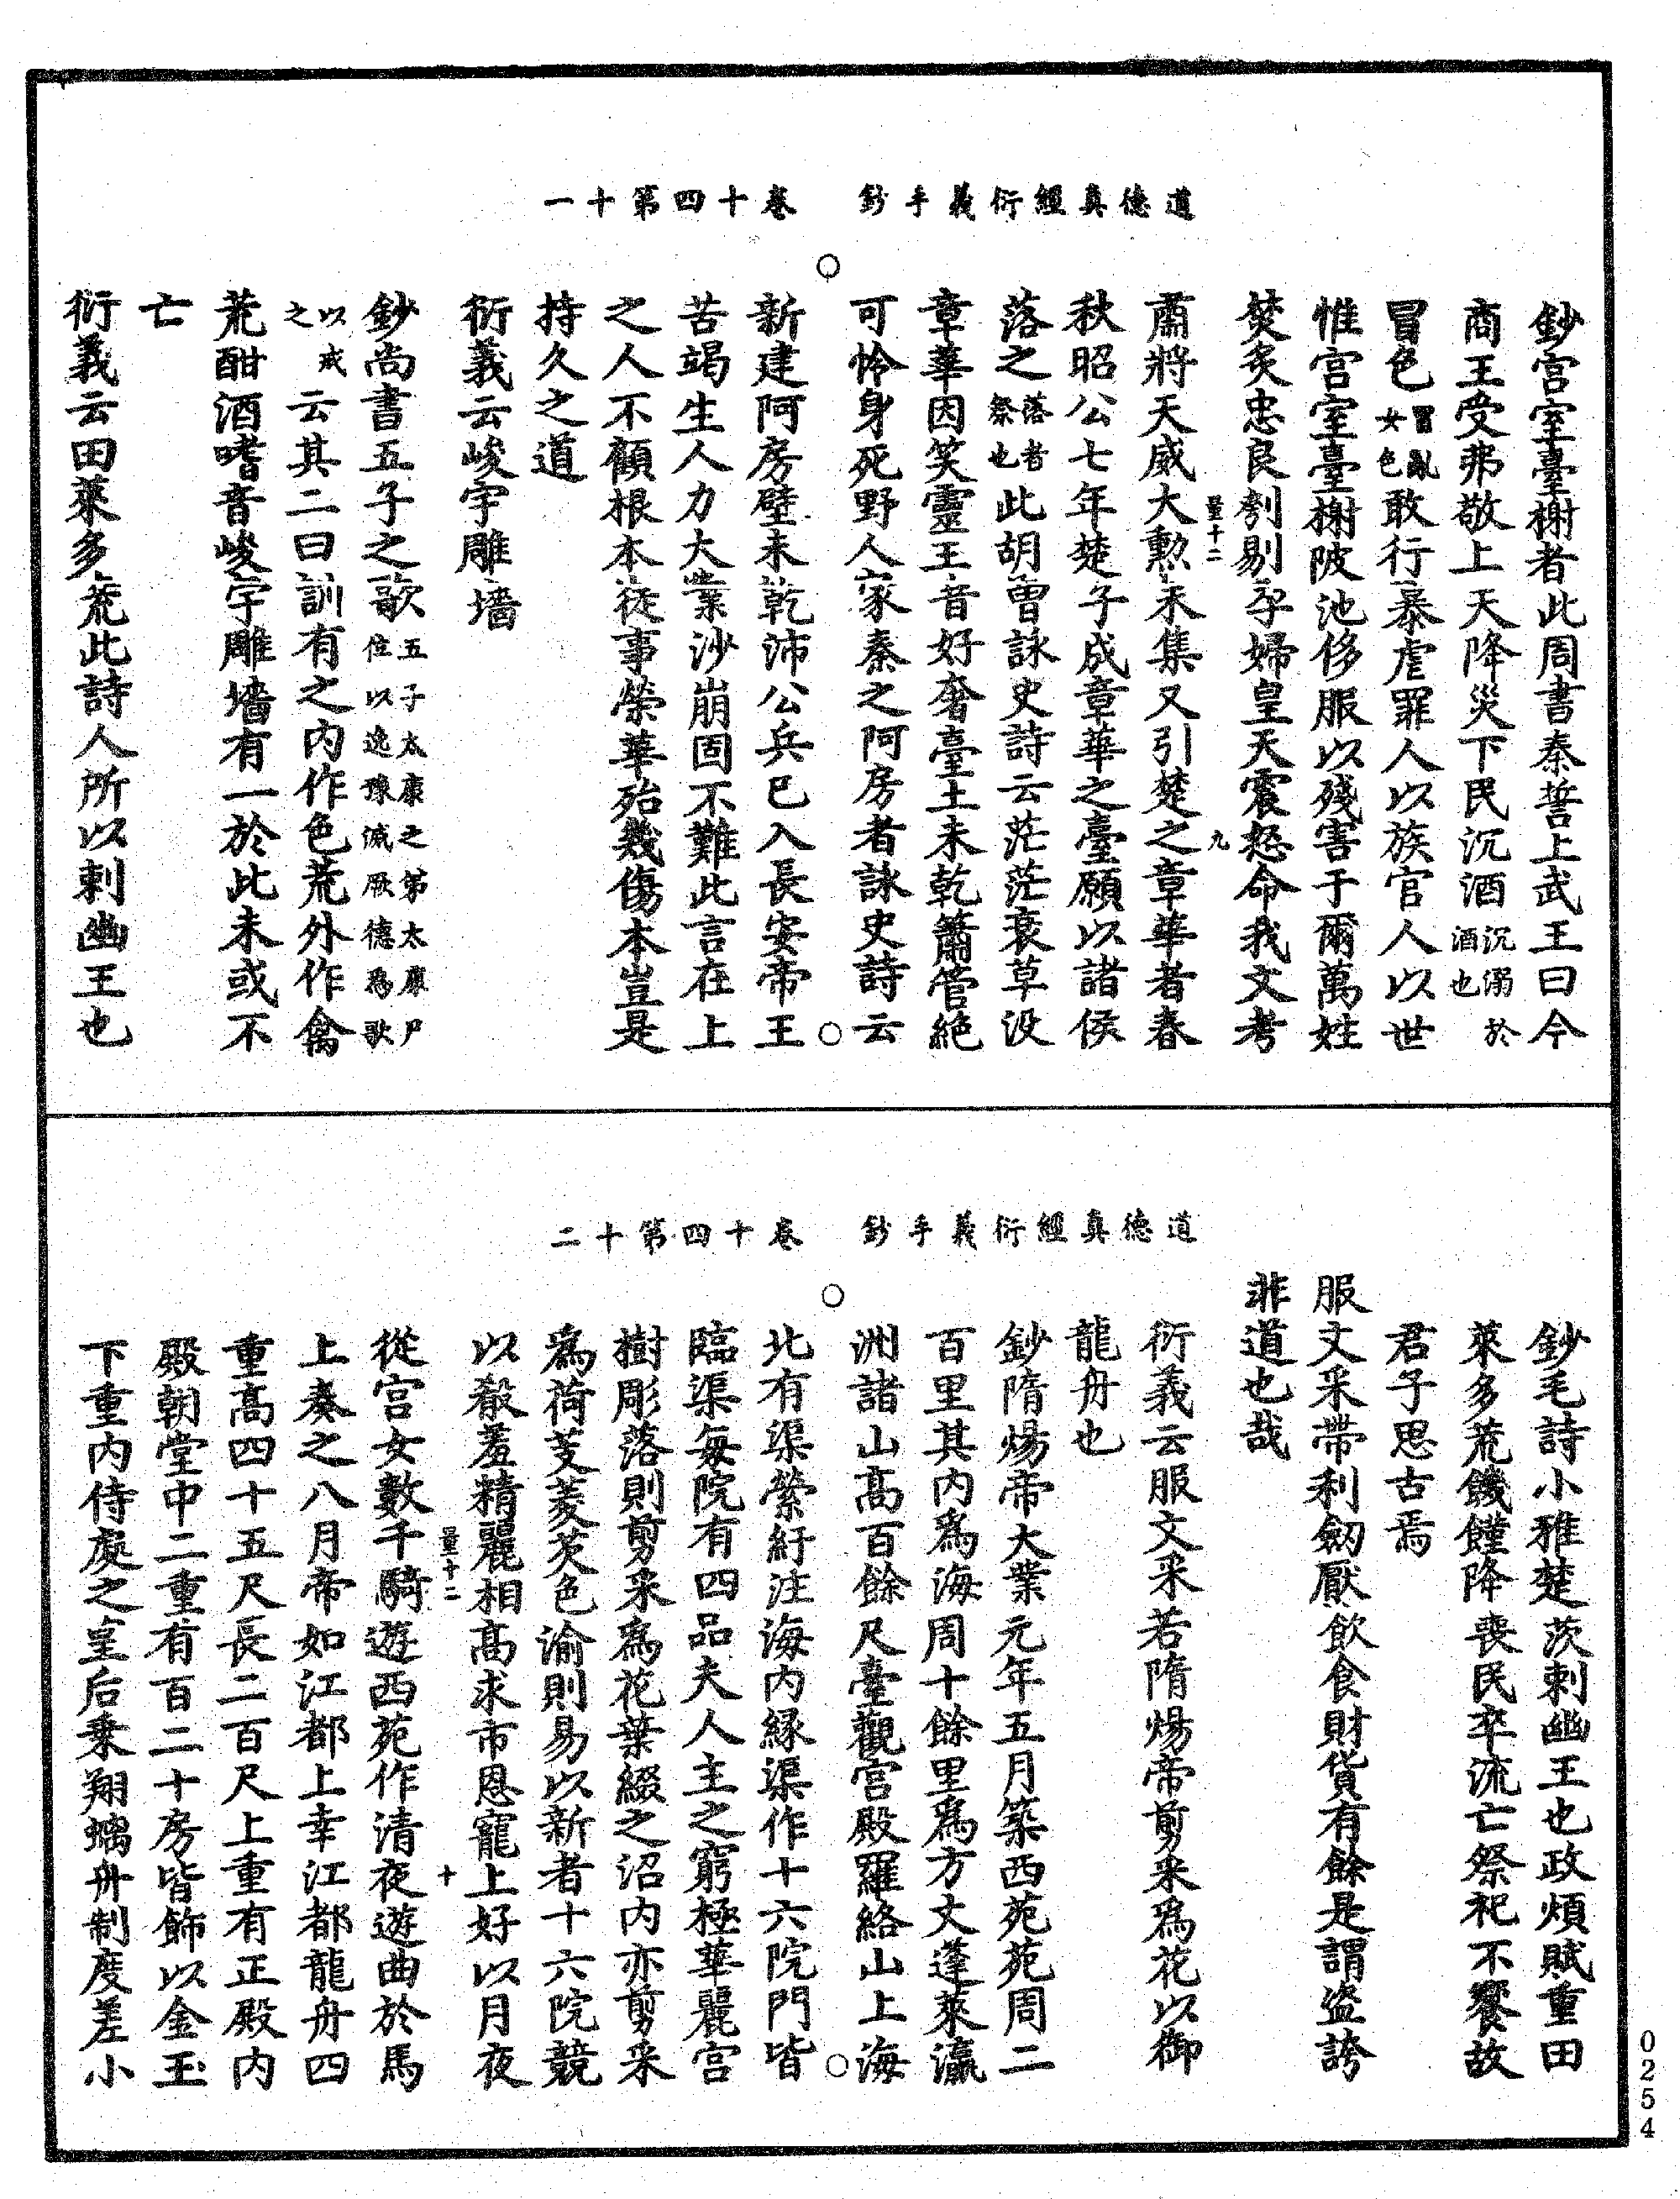 道德真經衍義手鈔　卷十四第十一
鈔宫室臺榭者此周書秦誓上武王曰今
商王受弗敬上天降災下民沉酒沉溺於酒也
冒色冒亂女色敢行暴虐罪人以族官人以世
惟宫室臺榭陂池侈服以殘害于爾萬姓
焚炙忠良刳剔孕婦皇天震怒命我文考
量十二　九
肅將天威大勲未集又引楚之章華者春
秋昭公七年楚子成章華之臺願以諸侯
落之落者祭也此胡曾詠史詩云茫茫衰草没
章華因笑靈王昔好奢臺土未乾簫管絶
可怜身死野人家秦之阿房者詠史詩云
新建阿房壁未乾沛公兵已入長安帝王
苦竭生人力大業沙崩固不難此言在上
之人不顧根本徒事榮華殆幾傷本豈是
持久之道
衍義云峻宇雕墻
鈔尚書五子之歌五子太康之第太康尸位以逸豫滅厥德爲歌
以戒之云其二曰訓有之内作色荒外作禽
荒酣酒嗜音峻宇雕墻有一於此未或不
亡
衍義云田萊多荒此詩人所以刺幽王也
道德真經衍義手鈔　卷十四第十二
鈔毛詩小雅楚茨刺幽王也政煩賦重田
萊多荒饑饉降喪民卒流亡祭祀不饗故
君子思古焉
服文采帶利劒厭飲食財貨有餘是謂盗誇
非道也哉
衍義云服文采若隋煬帝剪采爲花以御
龍舟也
鈔隋煬帝大業元年五月築西苑苑周二
百里其内爲海周十餘里爲方丈蓬萊瀛
洲諸山高百餘尺臺觀宫殿羅絡山上海
北有渠縈紆注海内緣渠作十六院門皆
臨渠每院有四品夫人主之窮極華麗宫
樹彫落則剪采爲花葉綴之沼内亦剪采
爲荷芰菱芡色渝則易以新者十六院競
以殽羞精麗相高求市恩寵上好以月夜
量十二　十
從宫女數千騎遊西苑作清夜遊曲於馬
上奏之八月帝如江都上幸江都龍舟四
重高四十五尺長二百尺上重有正殿内
殿朝堂中二重有百二十房皆飾以金玉
下重内侍處之皇后乘翔螭舟制度差小
0254